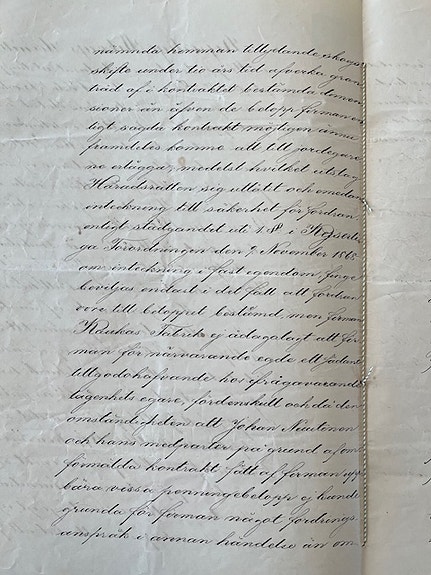 nämnda hemman tillydande skogs
skifte under tio års tid afverka gran
träd af i kontraktet bestämda dimen
sioner än äfven de belopp förman en
ligt sagda kontrakt möjligen ännu
framdeles komme att till jordegare
ne erlägga, medelst hvilket utslag
Häradsrätten sig utlåtit och emedan
inteckning till säkerhet för fordran
enligt stadgandet uti 1 § i Kejserli
ga Förordningen den 9 November 1868
om inteckning i fast egendom, finge
beviljas endast i det fall att fordran
vore till beloppet bestämd men förman
Kaukas Fabrik ej ådagalagt att för
man för närvarande egde ett sådant
tillgodohafvande hos ifrågavarande
lägenhets egare, fördenskull och då den
omständigheten att Johan Nuutinen
och hans medparter på grund af om
förmälda kontrakt fått af förman upp
bära vissa penningebelopp ej kunde
grunda för förman något fordrings
anspråk i annan händelse än om